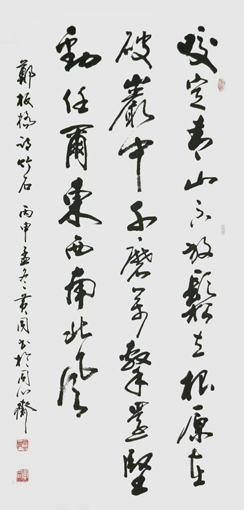 咬定青山不放鬆立根原在
破巖中千磨萬擊還堅
勁任爾東西南北風
鄭板橋詩竹石 丙申孟冬 黄国书於同心齋